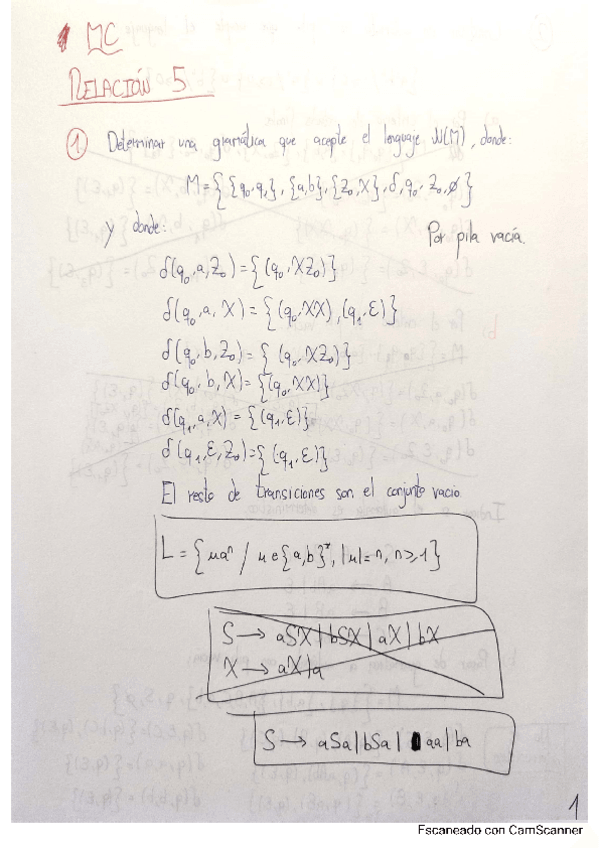 MC
RELACIÓN 5
① Determinar una gramática que acepte el lenguaje N(M), donde:
M = {{q₀,q₁}, {a,b}, {Z₀,X}, δ, q₀, Z₀, ∅}
y donde:
Por pila vacía.
δ(q₀,a,Z₀) = {(q₀,XZ₀)}
δ(q₀,a,X) = {(q₀,XX),(q₁,ε)}
δ(q₀,b,Z₀) = {(q₀,XZ₀)}
δ(q₀,b,X) = {(q₀,XX)}
δ(q₁,a,X) = {(q₁,ε)}
δ(q₁,ε,Z₀) = {(q₁,ε)}
El resto de transiciones son el conjunto vacío
L = {uaⁿ / u∈{a,b}*, |u|=n, n≥1}
S → aSX | bSX | aX | bX
X → aX | a
S → aSa | bSa | aa | ba
1
Escaneado con CamScanner